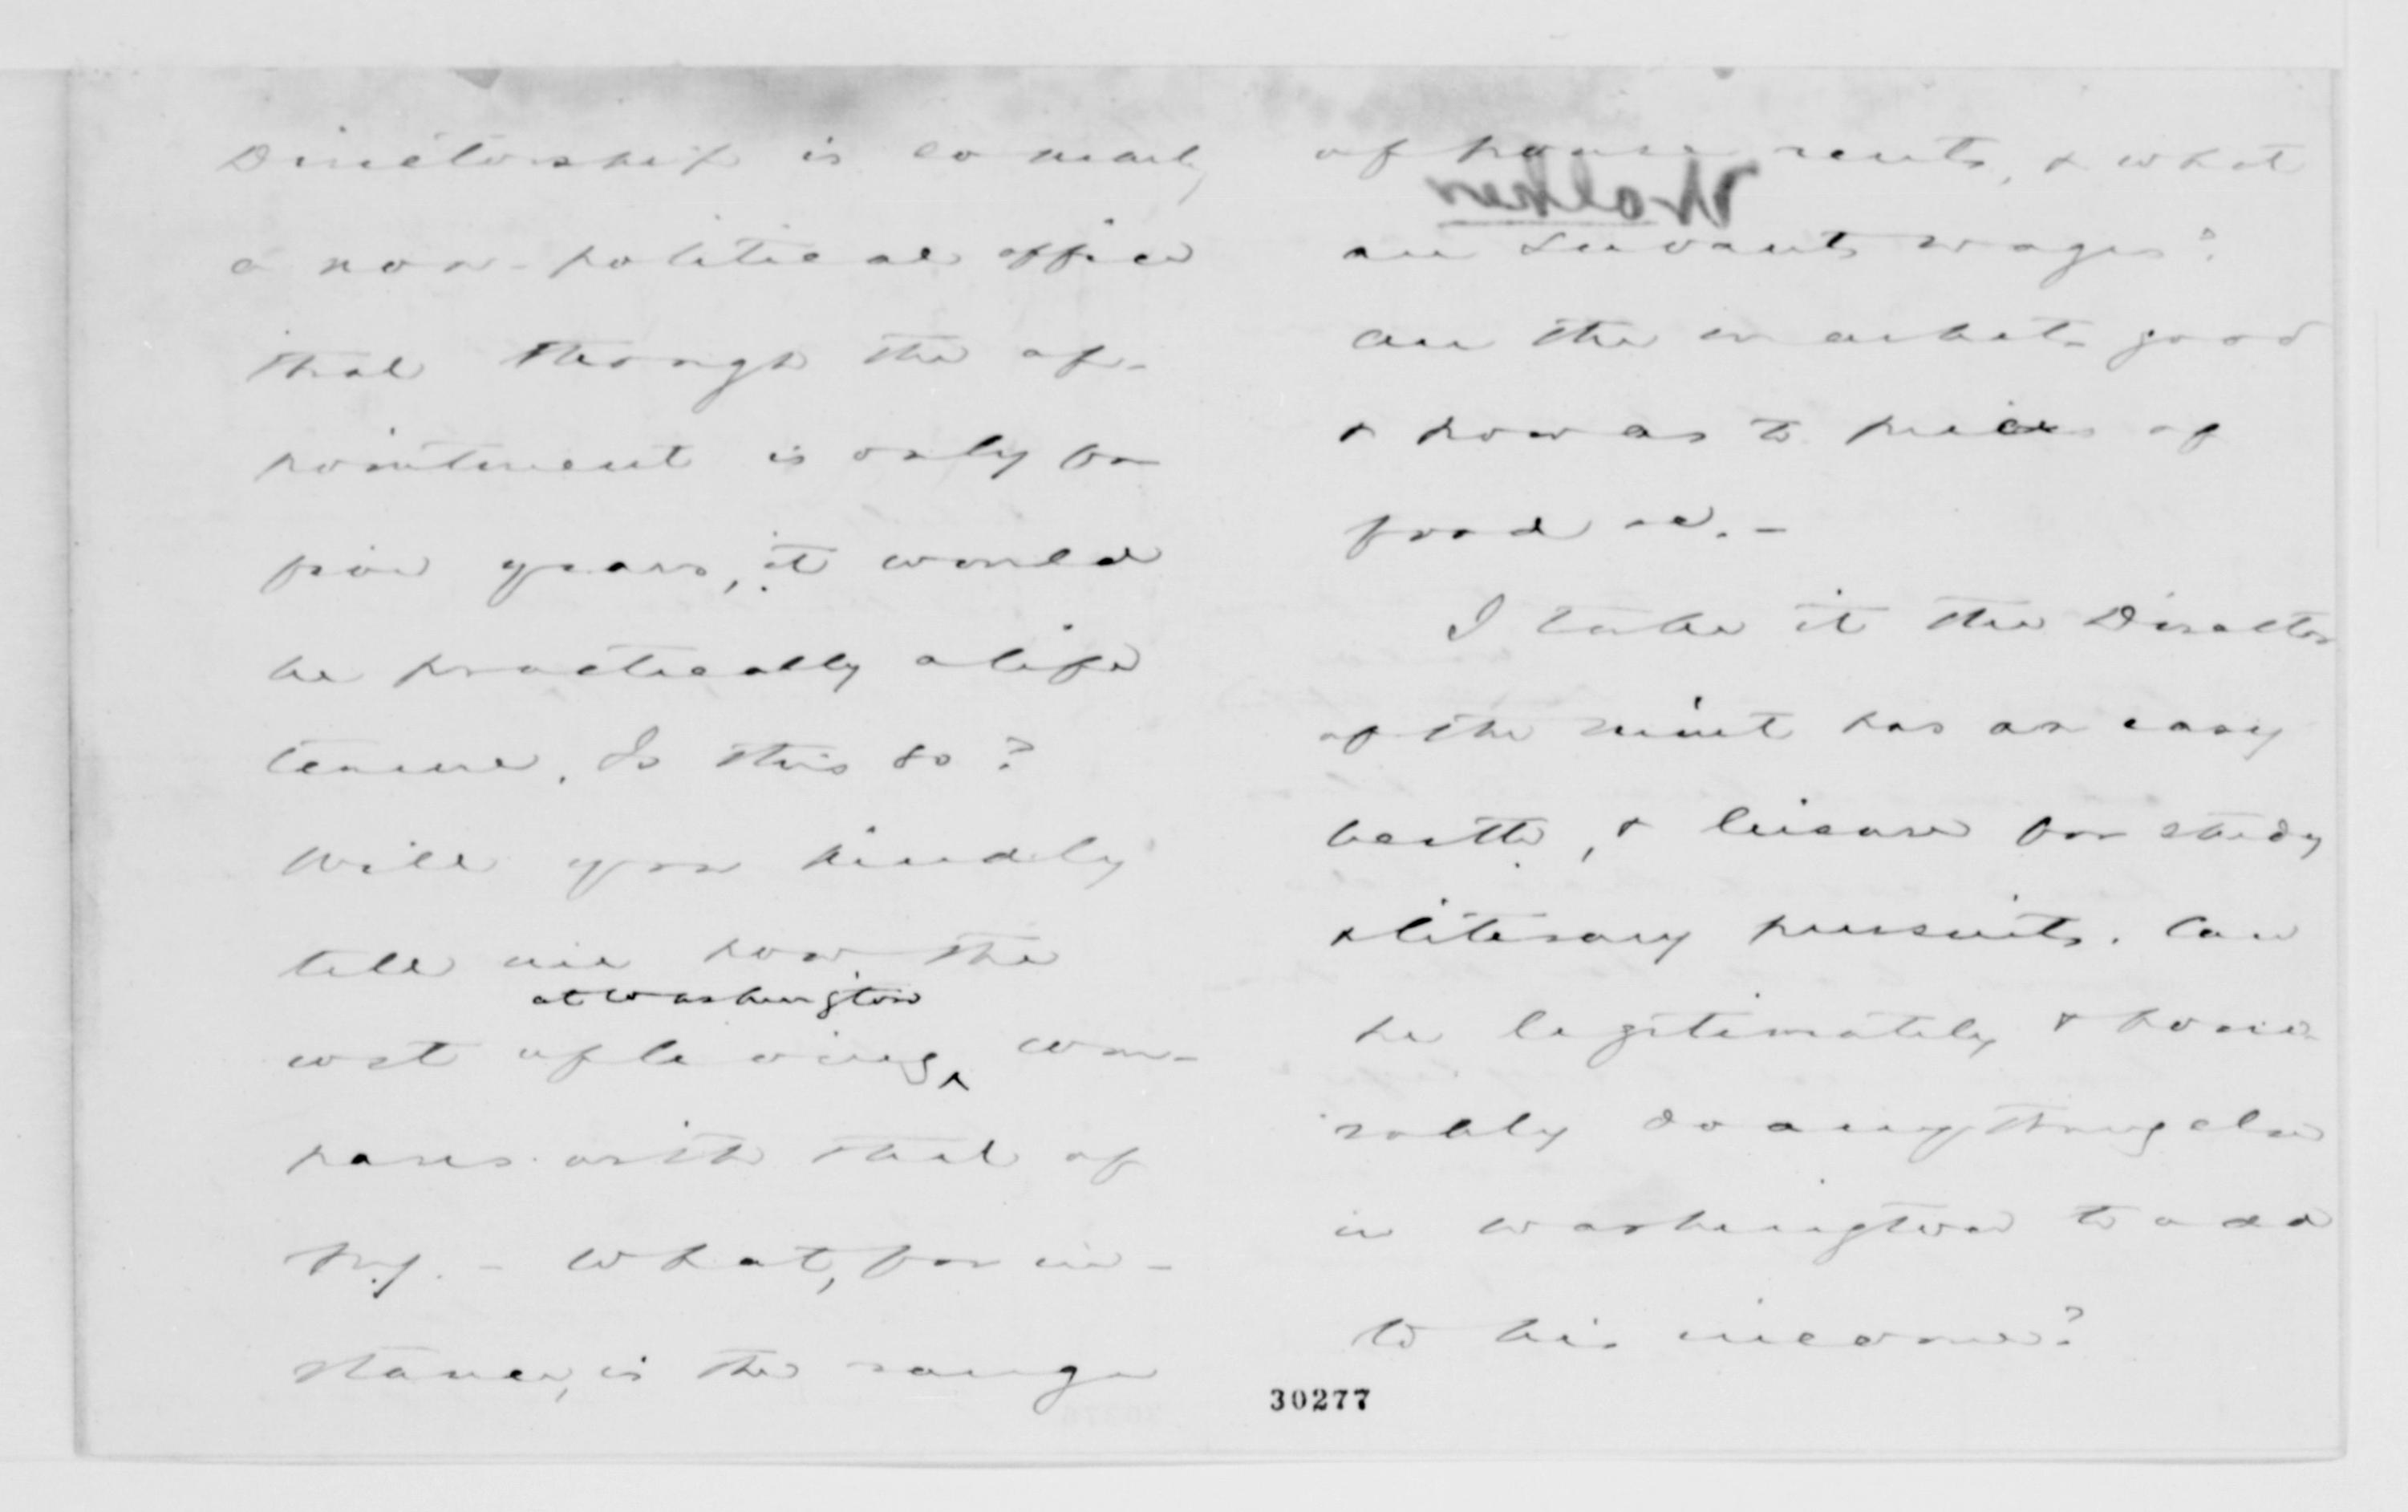 Directorship is so nearly
a non-political office
that though the ap-
pointment is only for
five years, it would
be practically a life
tenure. Is this so?
Will you kindly
tell me how the
at Washington
cost of living ^ com-
pares with that of
N.Y. - What, for in-
stance, is the range
of house rents, & what
are servants wages?
Are the markets good
& how as to prices of
food &c. -
I take it the Director
of the mint has an easy
berth, & leisure for study
& literary pursuits. Can
he legitimately & hono-
rably do anything else
in Washington to add
to his income?
Walker
30277